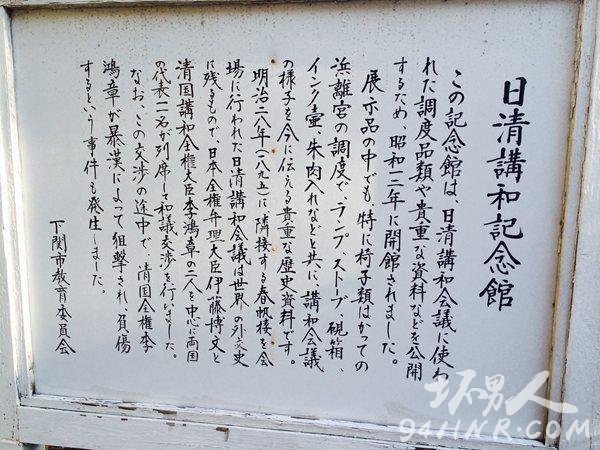 日清講和記念館
この記念館は、日清講和会議に使わ
れた調度品類や貴重な資料などを公開
するため 昭和十二年に開館されました。
展示品の中でも、特に椅子類はかっての
浜離宮の調度で、ランプ、ストーブ、硯箱、
インク壷、朱肉入れなどと共に、講和会議
の様子を今に伝える貴重な歴史資料です。
明治二八年(一八九五)に隣接する春帆楼を会
場に行われた日清講和会議は世界の外交史
に残るもので、日本全権弁理大臣伊藤博文と
清国講和全権大臣李鴻章の二人を中心に両国
の代表十一名が列席して和議交渉を行いました。
なお、この交渉の途中で、清国全権李
鴻章が暴漢によって狙撃され、負傷
するという事件も発生しました。
下関市教育委員会
坏男人
941HNR.COM